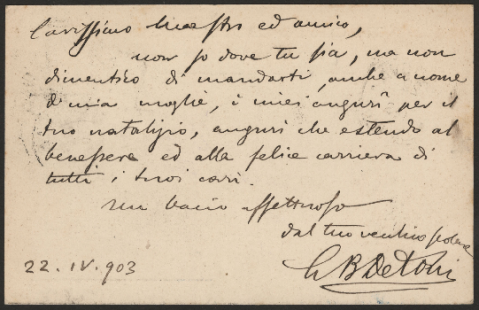 Carissimo Maestro ed amico,
non so dove tu sia, ma non
dimentico di mandarti, anche a nome
di mia moglie, i miei augurî per il
tuo natalizio, augurî che estendo al
benessere ed alla felice carriera di
tutti i tuoi cari.
Un bacio affettuoso
dal tuo vecchio scolare
G B DeToni
22. IV. 903